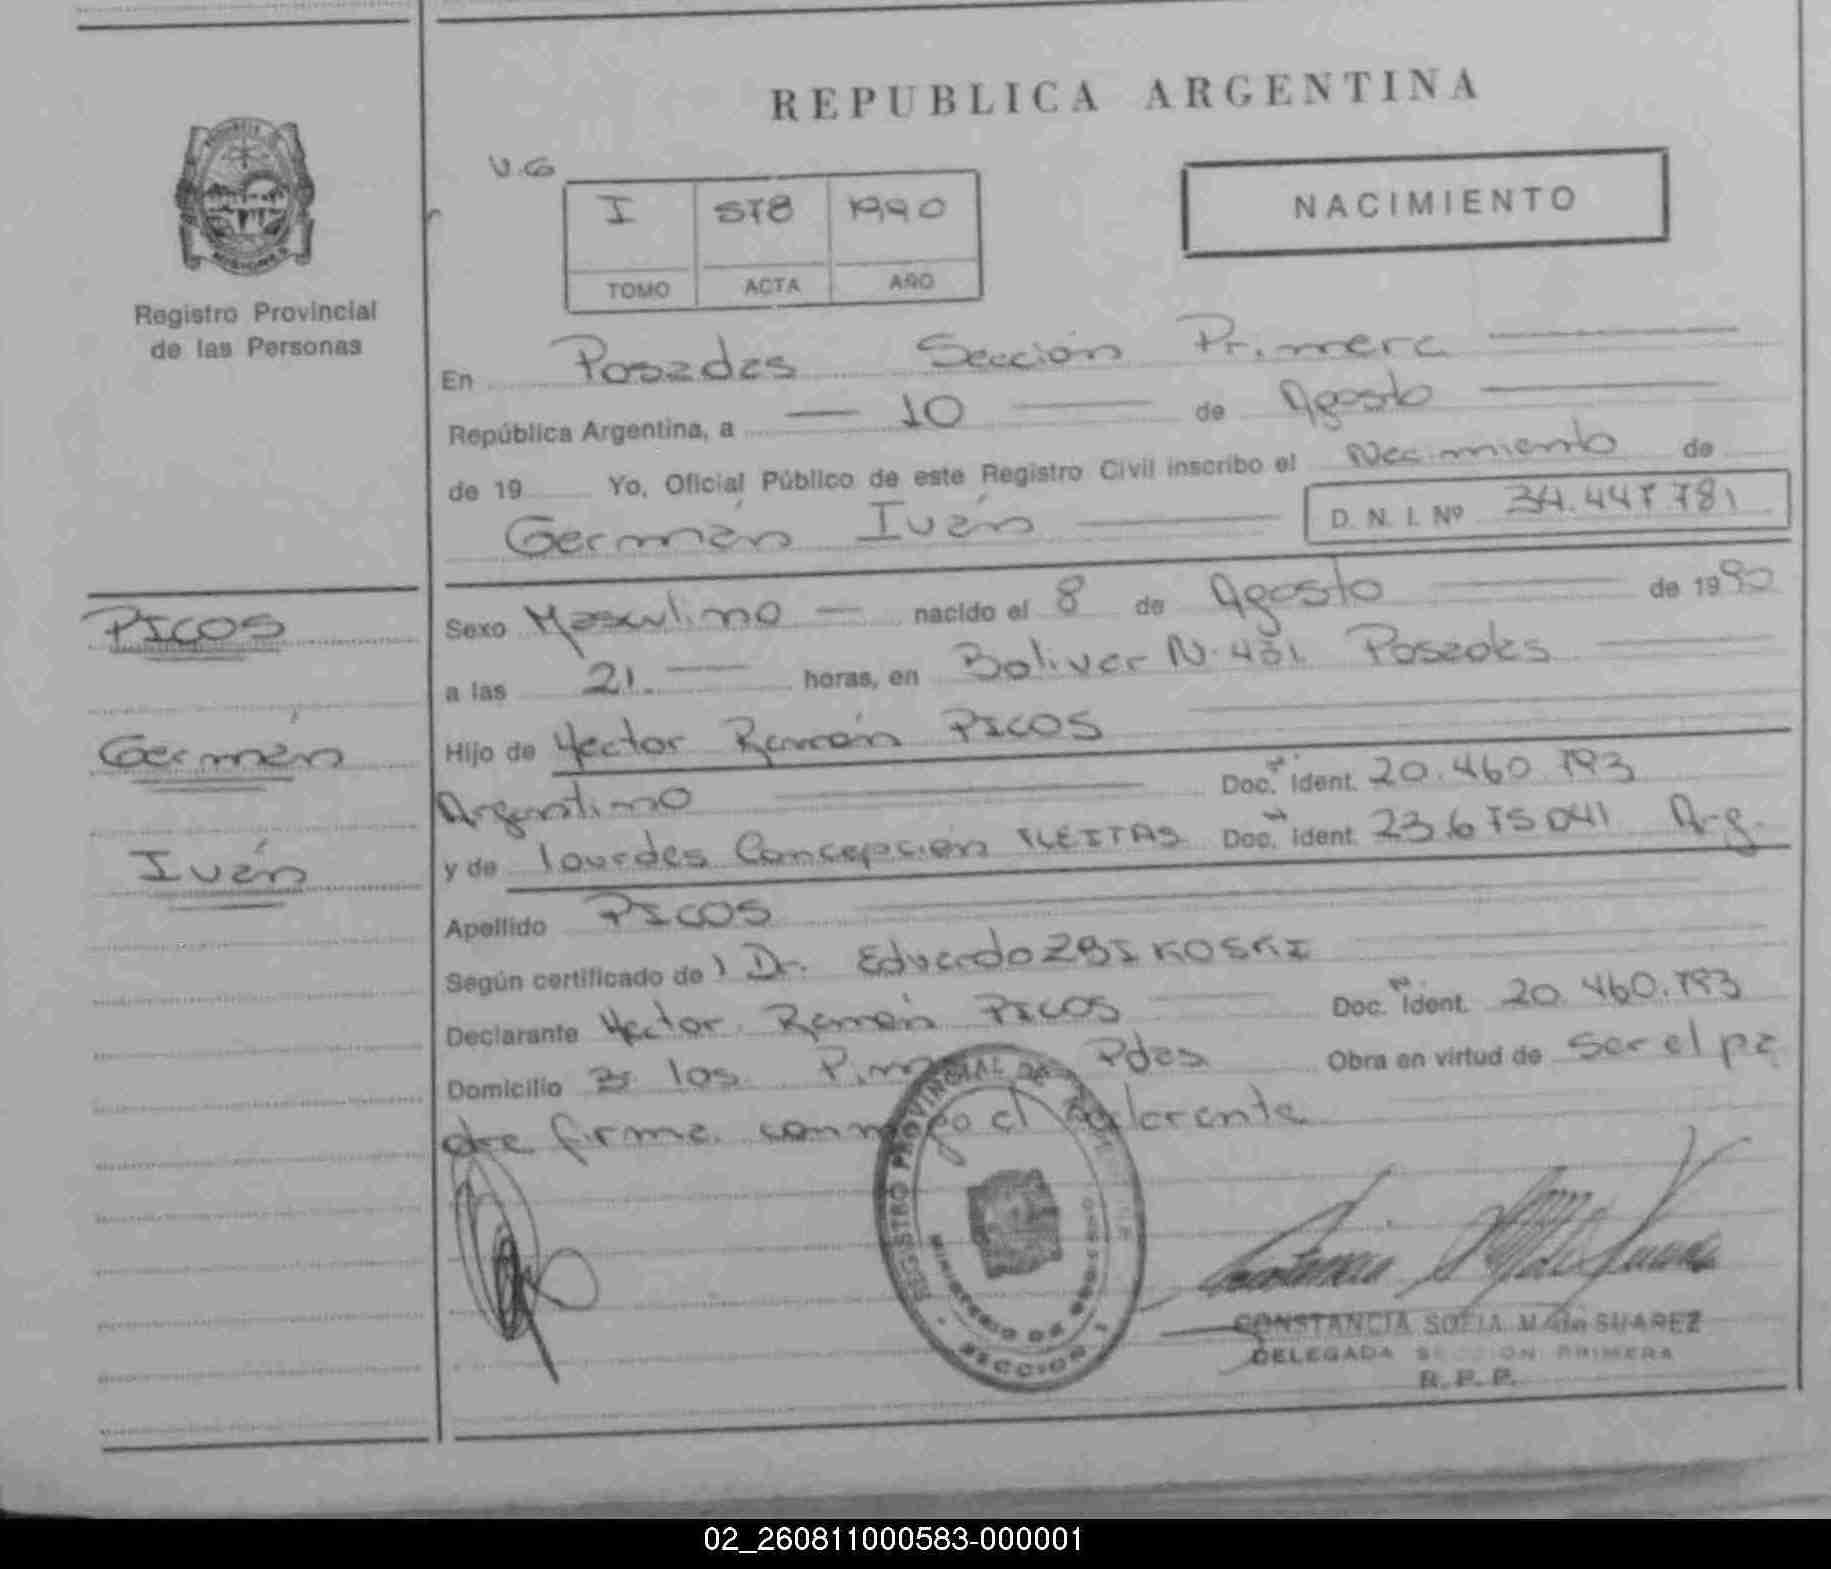 REPUBLICA ARGENTINA
V.G
I 578 1990
TOMO ACTA AÑO
NACIMIENTO
Registro Provincial
de las Personas
En Posadas Sección Primera
República Argentina, a 10 de Agosto
de 19 Yo, Oficial Público de este Registro Civil inscribo el Nacimiento de
Germán Iván D. N. I. Nº 34.447.781
PICOS
Germán
Iván
Sexo Masculino nacido el 8 de Agosto de 1990
a las 21. horas, en Bolivar N. 431 Posadas
Hijo de Hector Ramón PICOS
Argentino Doc. Ident. 20.460.793
y de Lourdes Concepción FLEITAS Doc. Ident. 23.675041 Arg.
Apellido PICOS
Según certificado de Dr. Eduardo ZBIKOSKI
Declarante Hector Ramón PICOS Doc. Ident. 20.460.793
Domicilio Pdas Obra en virtud de ser el pa
dre firma conmigo el
REGISTRO PROVINCIAL DE
MINISTERIO DE GOBIERNO
SECCION 1
CONSTANCIA SOFIA SUAREZ
DELEGADA SECCION PRIMERA
R. P. P.
02_260811000583-000001